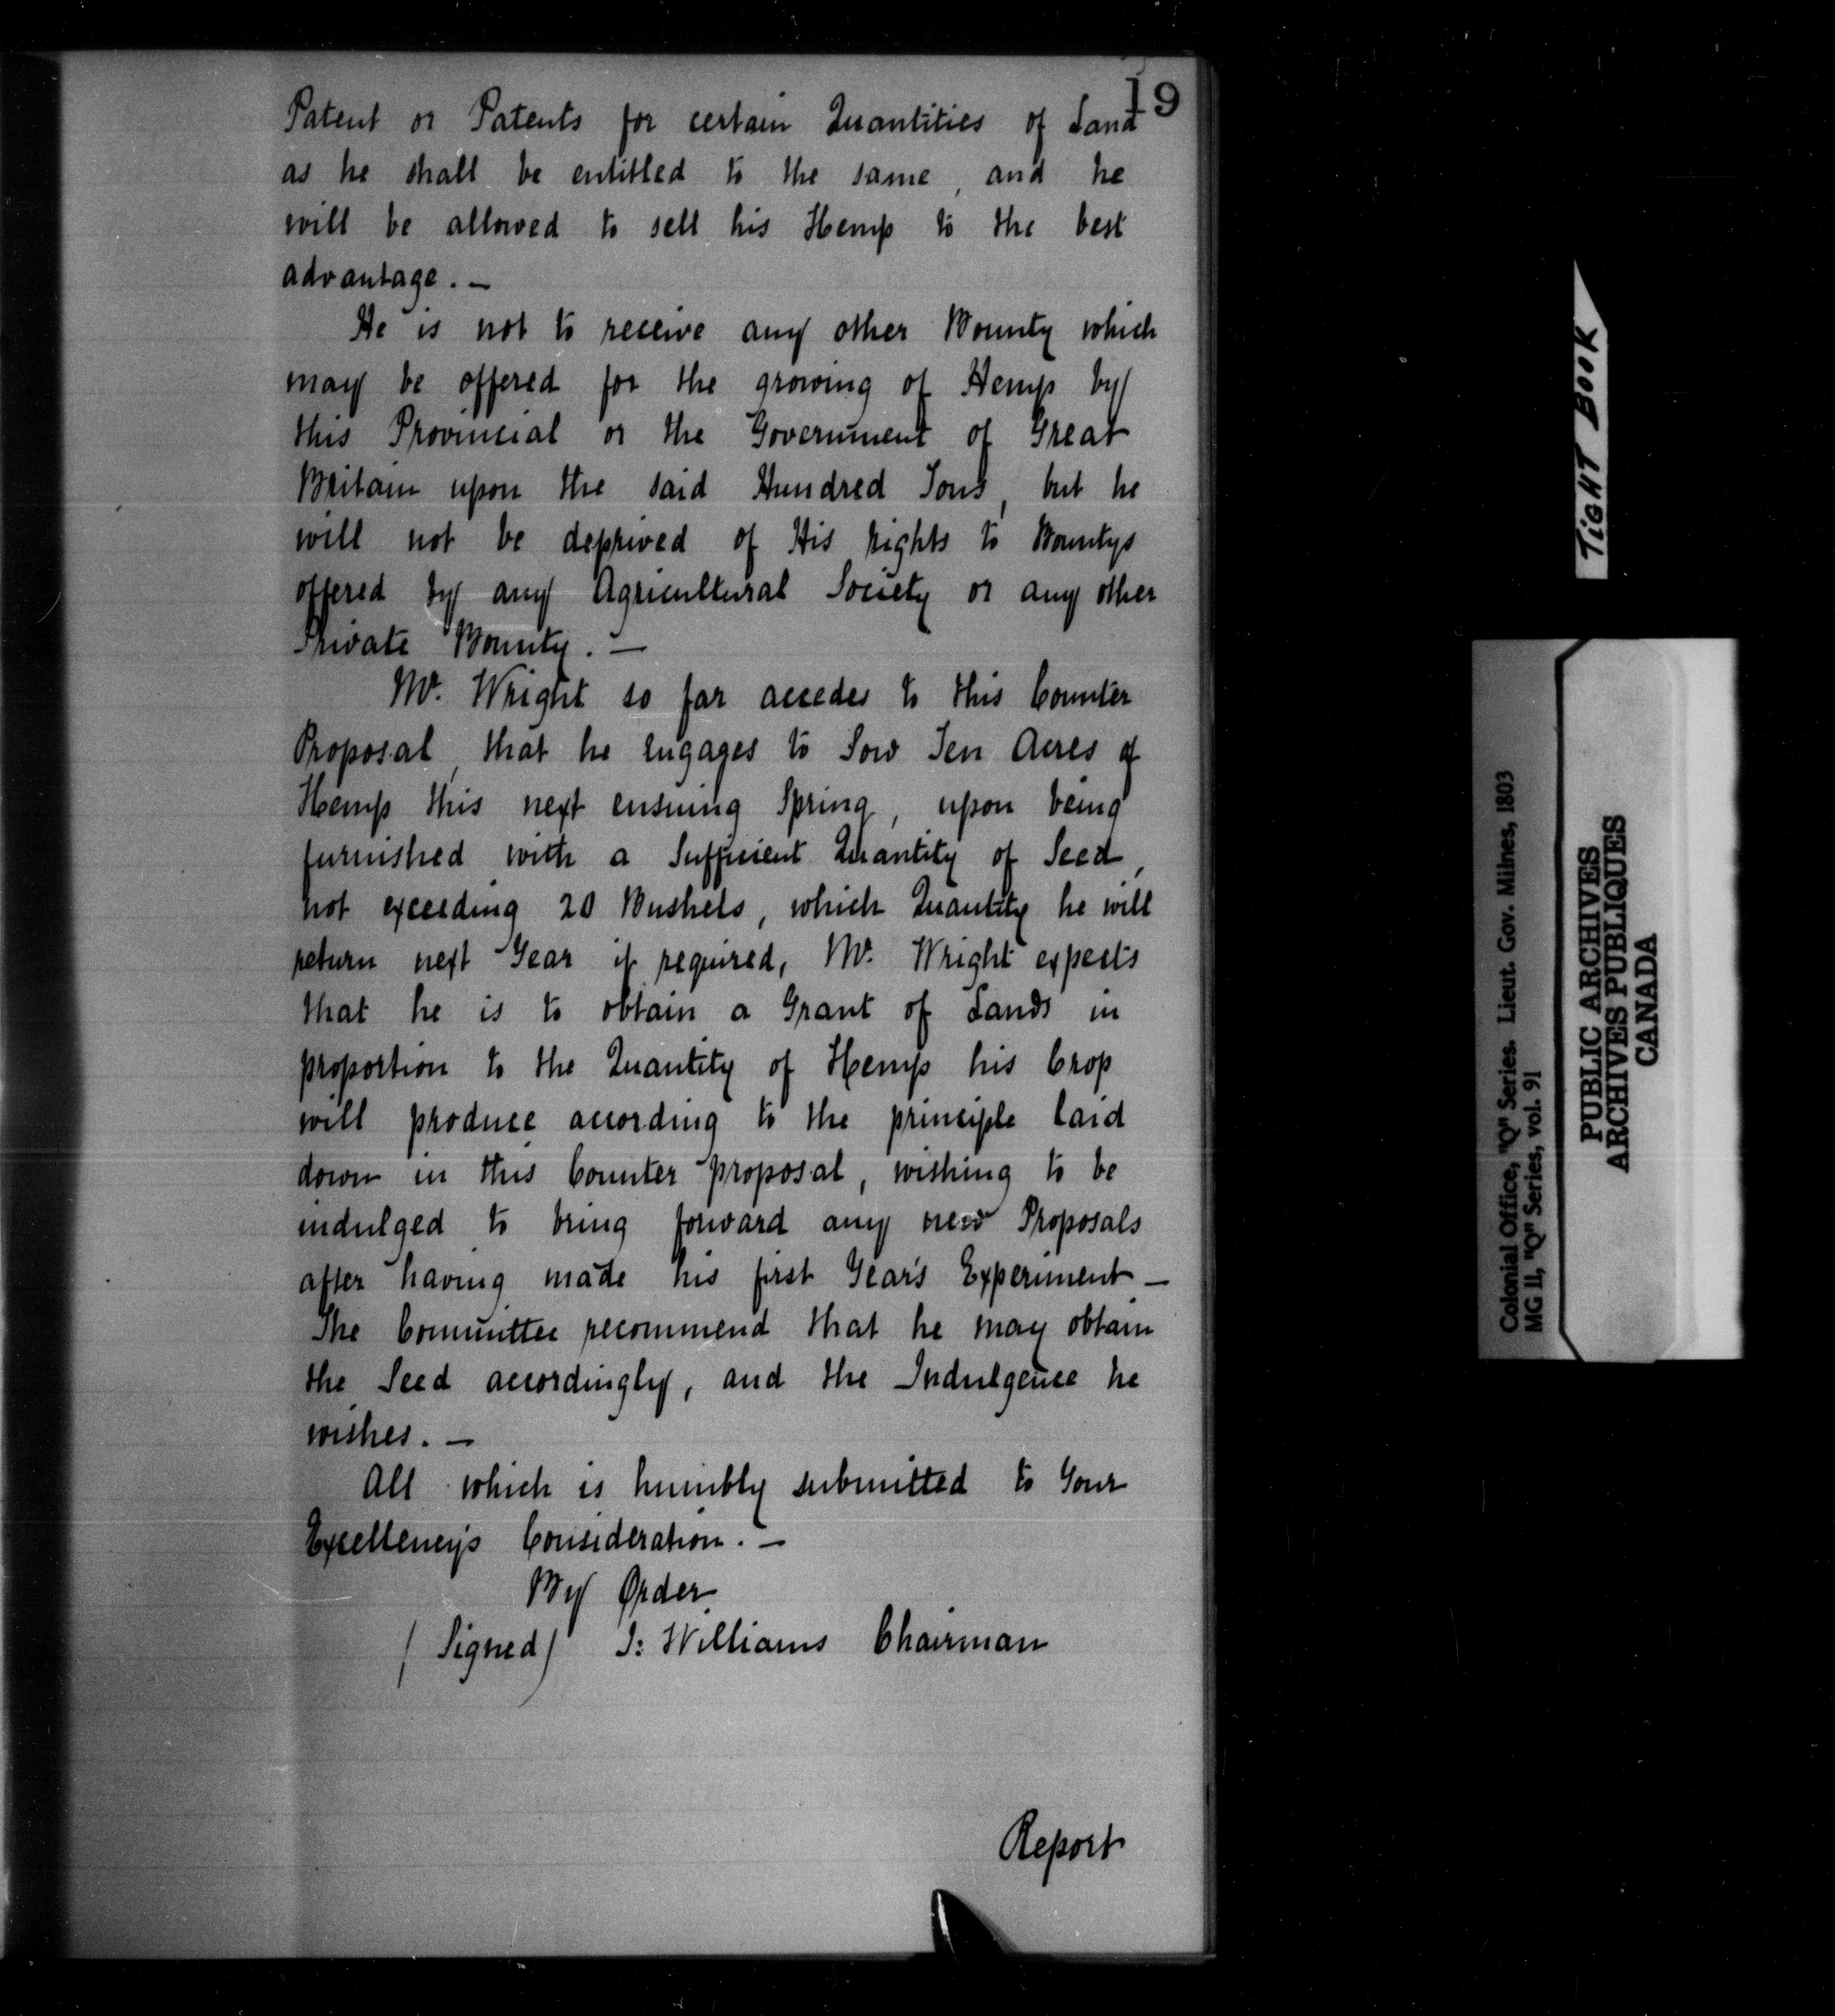 19
Patent or Patents for certain Quantities of Land
as he shall be entitled to the same, and he
will be allowed to sell his Hemp to the best
advantage. —
He is not to receive any other Bounty which
may be offered for the growing of Hemp by
this Provincial or the Government of Great
Britain upon the said Hundred Tons, but he
will not be deprived of His rights to Bountys
offered by any Agricultural Society or any other
Private Bounty. —
Mr. Wright so far accedes to this Counter
Proposal, that he engages to Sow Ten Acres of
Hemp this next ensuing Spring, upon being
furnished with a Sufficient Quantity of Seed,
not exceeding 20 Bushels, which Quantity he will
return next Year if required, Mr. Wright expects
that he is to obtain a Grant of Lands in
proportion to the Quantity of Hemp his Crop
will produce according to the principle laid
down in this Counter proposal, wishing to be
indulged to bring forward any new Proposals
after having made his first Year's Experiment —
The Committee recommend that he may obtain
the Seed accordingly, and the Indulgence he
wishes. —
All which is humbly submitted to Your
Excellency's Consideration. —
By Order
(Signed) J: Williams Chairman
Report
TIGHT BOOK
Colonial Office, "Q" Series. Lieut. Gov. Milnes, 1803
MG 11, "Q" Series, vol. 91
PUBLIC ARCHIVES
ARCHIVES PUBLIQUES
CANADA